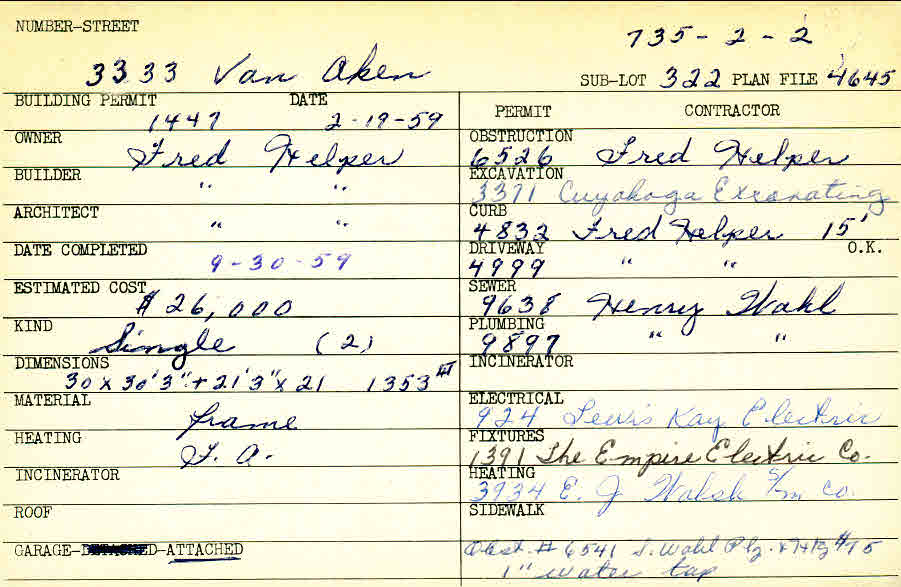 NUMBER-STREET
735-2-2
3333 Van Aken
SUB-LOT 322 PLAN FILE 4645
BUILDING PERMIT DATE
1447 2-19-59
OWNER
Fred Helper
BUILDER
" "
ARCHITECT
" "
DATE COMPLETED
9-30-59
ESTIMATED COST
$26,000
KIND
Single (2)
DIMENSIONS
30 x 30'3" + 21'3" x 21 1353
MATERIAL
frame
HEATING
F. A.
INCINERATOR
ROOF
GARAGE-DETACHED-ATTACHED
PERMIT CONTRACTOR
OBSTRUCTION
6526 Fred Helper
EXCAVATION
3371 Cuyahoga Excavating
CURB
4832 Fred Helper 15'
DRIVEWAY O.K.
4999 " "
SEWER
9638 Henry Wahl
PLUMBING
9897 " "
INCINERATOR
ELECTRICAL
924 Lewis Kay Electric
FIXTURES
1391 The Empire Electric Co.
HEATING
3934 E. J. Walsh S/m Co.
SIDEWALK
Obst. # 6541 Wahl Plg. & Htg
1" water tap